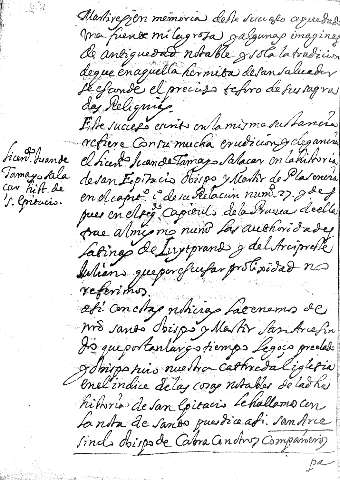 Martires, en memoria deste suceso a quedado
una fuente milagrosa y algunas imagines
de antiguedad notable y sola la tradicion
de que en aquella hermita de san saluador
se esconde el precioso tesoro de sus sagra
das Reliquias.
Este suceso escrito en la misma sustancia
refiere con su mucha erudicion y elegancia
el licen.do Juan de Tamayo Salaçar en la historia
de san Epitacio Obispo y Martir de Plasencia
en el cap.o 1.o de su Relacion num.o 27. y des
pues en el seg. Capitulo de la Prueva de ella
trae al mismo num.o las authoridades
latinas de Luytprando y del Arcipreste
Juliano que por escusar prolixidad no
referimos,
Asi con estas noticias las tenemos de
nro santo Obispo y Martir San Arcesin
do que por tan largo tiempo le goço prelado
y obispo nuestra cathedral iglesia
en el indice de las cosas notables de la dha
historia de san Epitacio le hallamos con
la nota de santo pues dia asi. san Arce
sindo obispo de Cabra con otros compañeros
pa
licen.do Juan de
Tamayo Sala
çar hist. de
S. Epitacio.